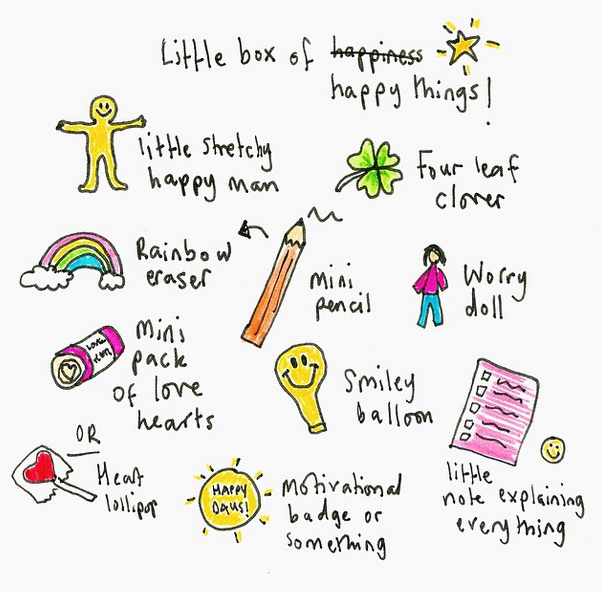 Little box of happiness
happy things!
little stretchy
happy man
Four leaf
clover
Rainbow
eraser
mini
pencil
Worry
doll
Mini
pack
of love
hearts
Smiley
balloon
OR
Heart
lollipop
HAPPY
DAYS!
Motivational
badge or
something
little
note explaining
everything